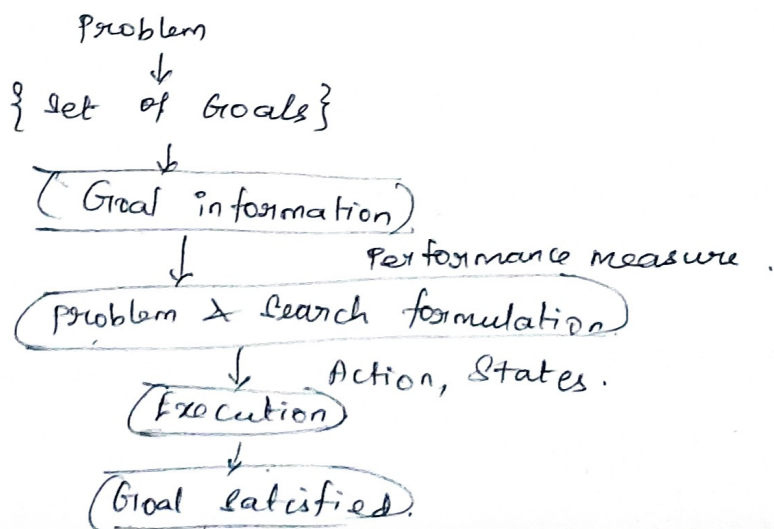 Problem
{ Set of Goals}
Goal information
Performance measure.
problem & Search formulation
Action, States.
Execution
Goal satisfied.